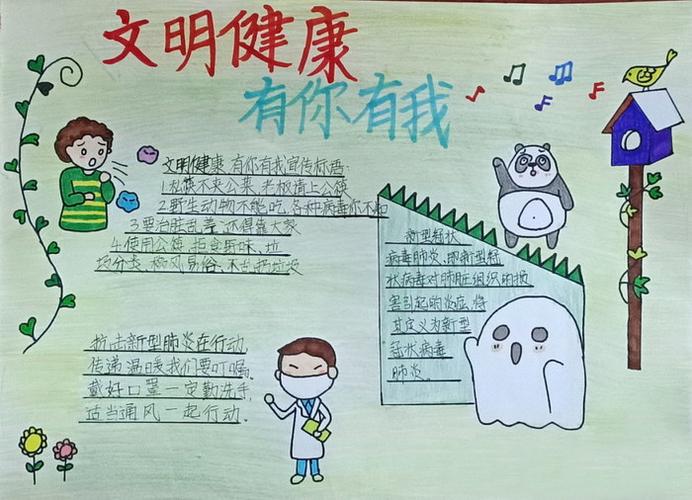 文明健康
有你有我
文明健康 有你有我宣传标语
1.私筷不夹公菜,老板请上公筷
2.野生动物不能吃,各种病毒你不知
3.要治脏乱差,还得靠大家
4.使用公筷,拒食野味,垃
圾分类,移风易俗,不乱扔垃圾
新型冠状
病毒肺炎,即新型冠
状病毒对肺脏组织的损
害引起的炎症,将
其定义为新型
冠状病毒
肺炎。
抗击新型肺炎在行动,
传递温暖我们要叮嘱,
戴好口罩一定勤洗手,
适当通风一起行动.